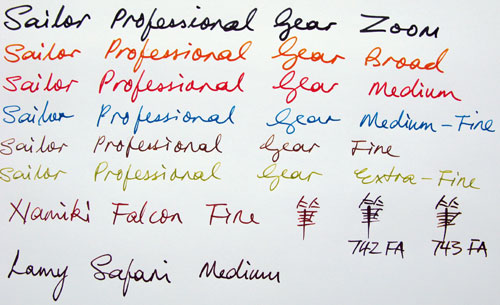 Sailor Professional Gear Zoom
Sailor Professional Gear Broad
Sailor Professional Gear Medium
Sailor Professional Gear Medium-Fine
Sailor Professional Gear Fine
Sailor Professional Gear Extra-Fine
Namiki Falcon Fine 筆 筆 筆
742 FA 743 FA
Lamy Safari Medium